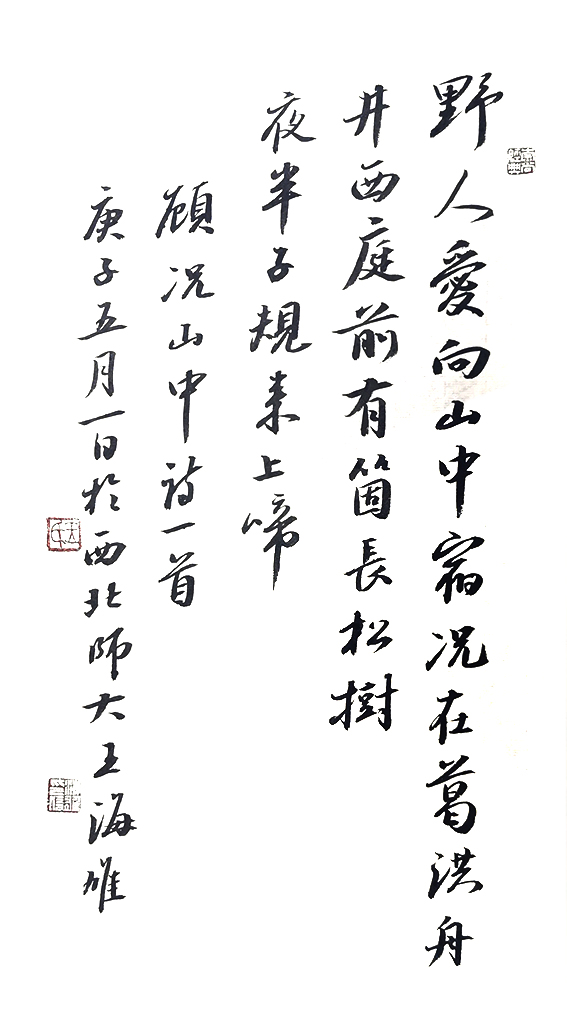 野人愛向山中宿况在葛洪丹
井西庭前有箇長松樹
夜半子規来上啼
顧况山中詩一首
庚子五月一日於西北師大王海雄